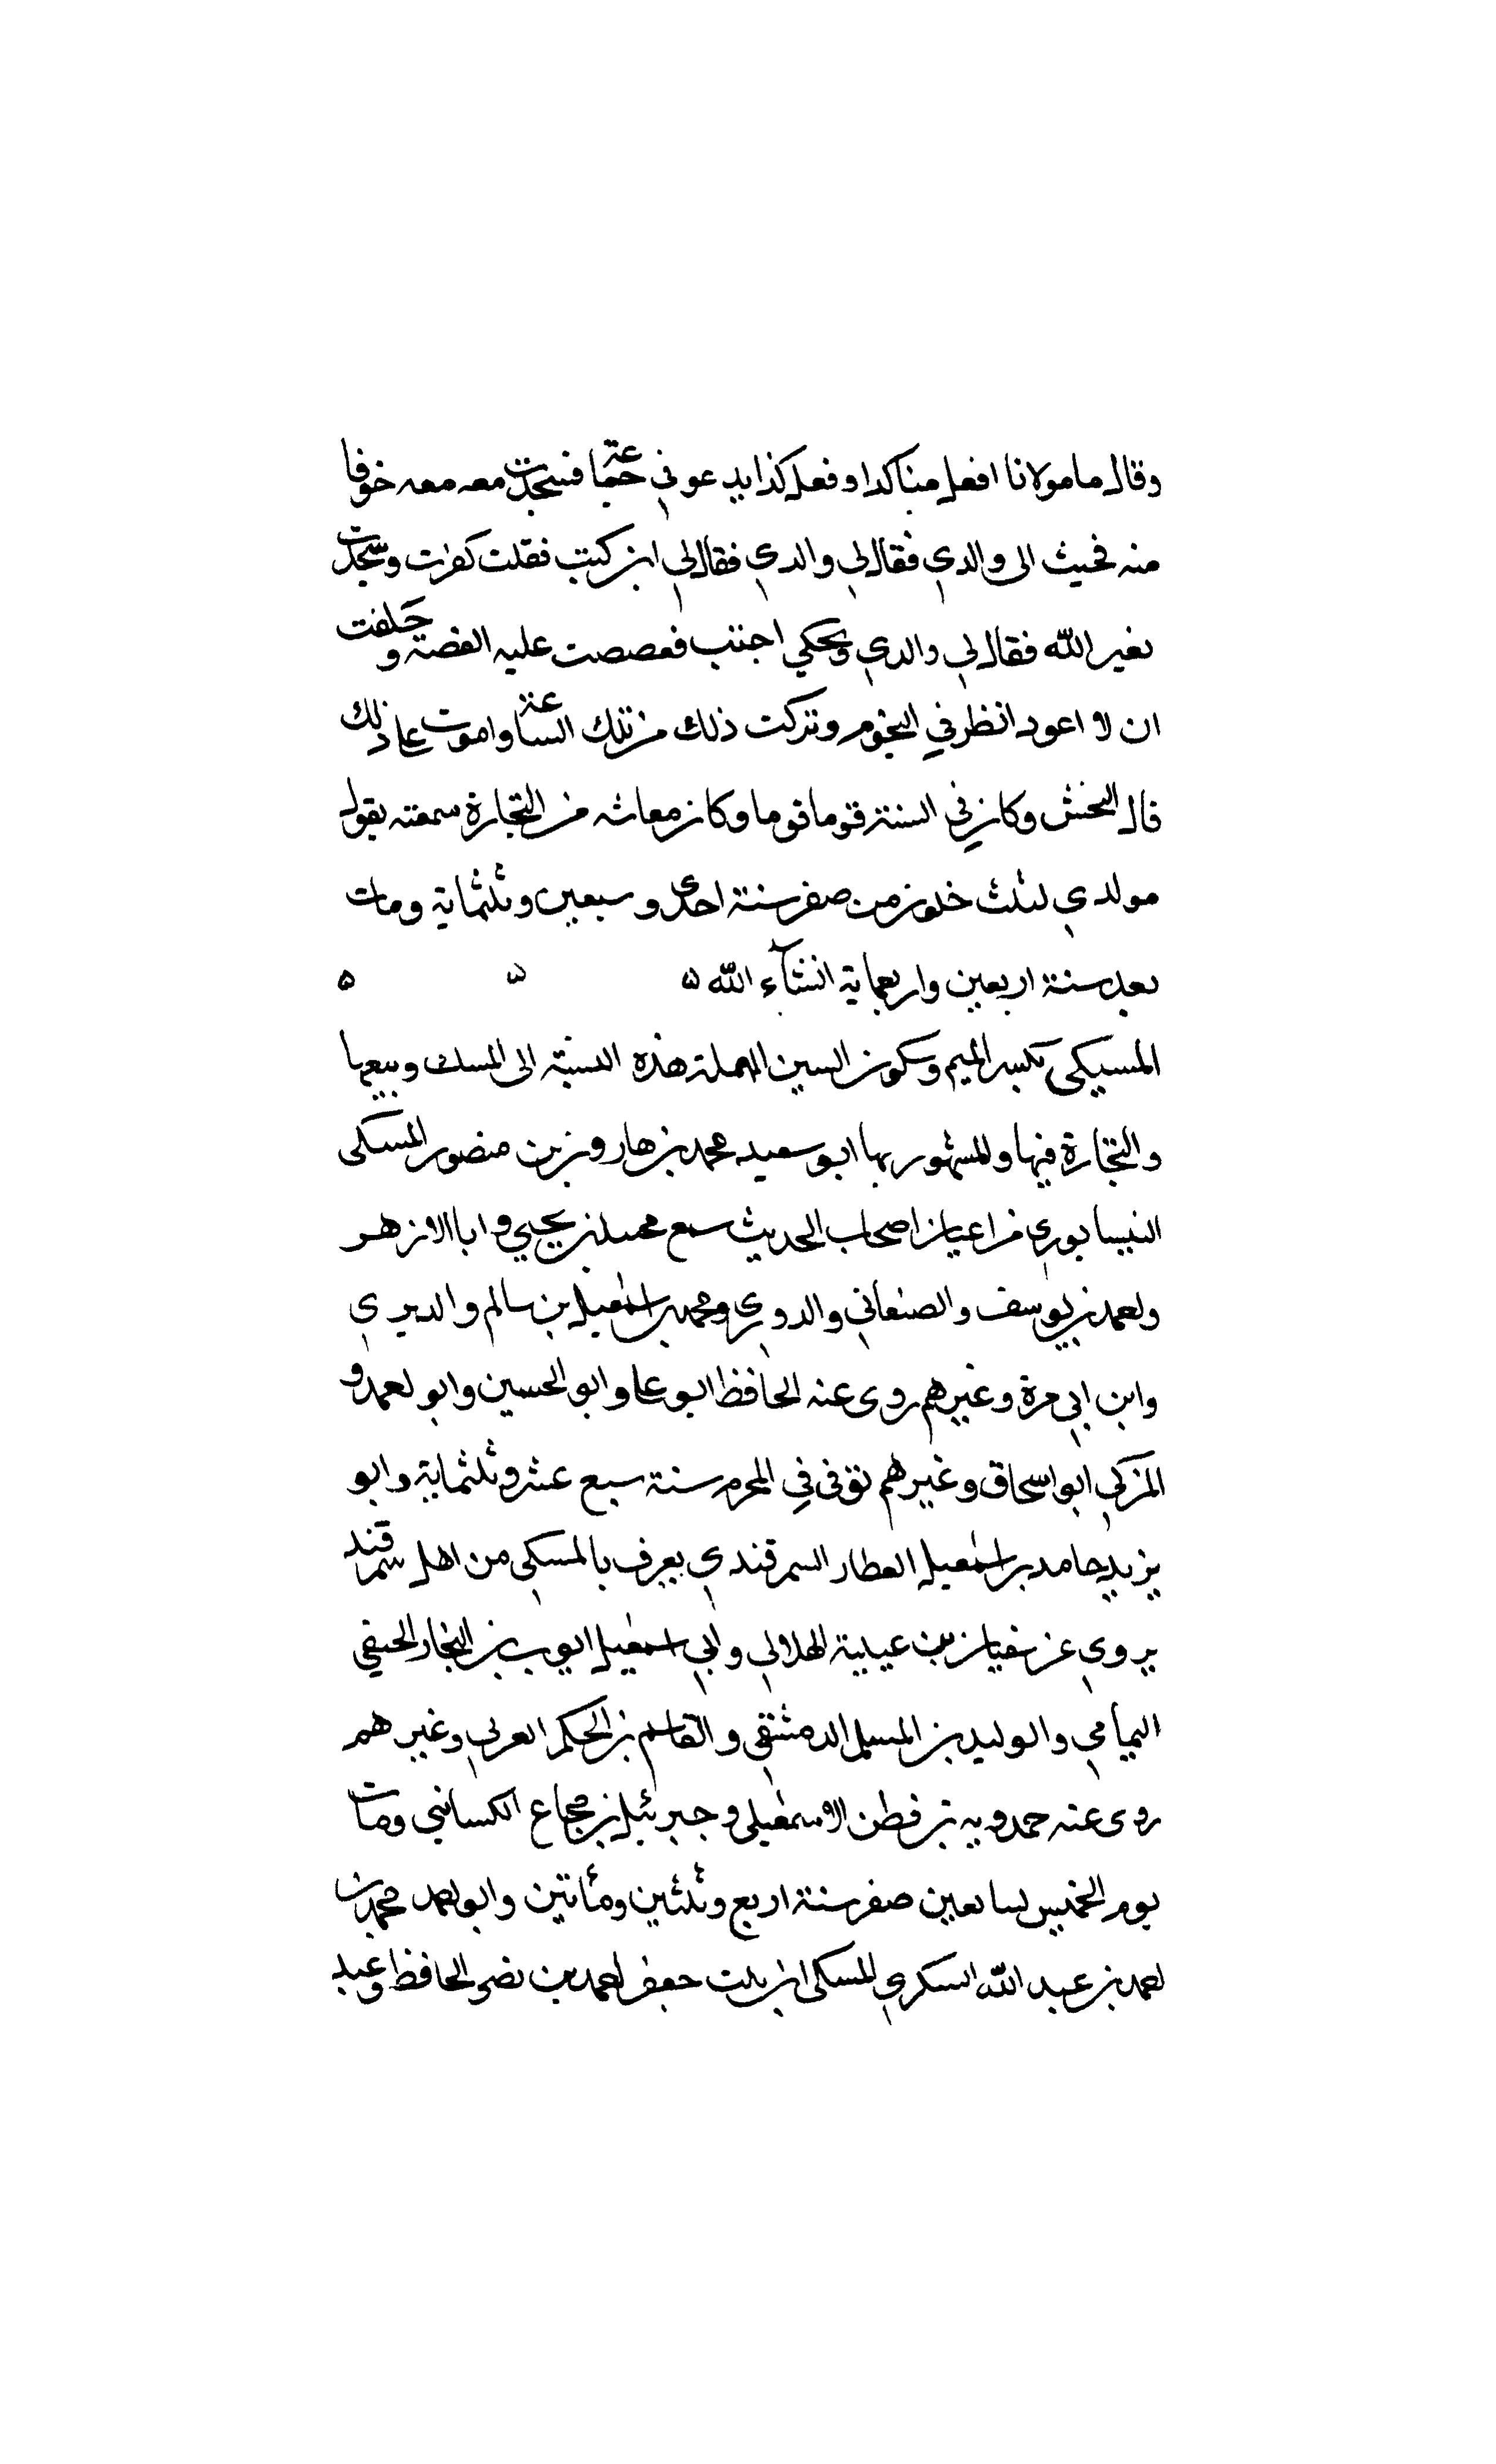 وقال مامولانا افعل مناكدا وفعل كذا يدعوني جماعة فسجدت معه معه خوفا
منه فجيت الى والدي فقال لي والدي فقال لي اين كنت فقلت كفرت وسجدت
لغير الله فقال لي والدي ويحكي اجننت فقصصت عليه القصة وحلفت
ان لا اعود انظر في النجوم وتركت ذلك من تلك الساعة واموت على ذلك
قال النخشى وكان في السنة قوما قوما وكان معاشه من التجارة سمعته يقول
مولدي لثلث خلون من صفر سنة احدى وسبعين وثلثماية ومات
بعد سنة اربعين واربعماية انشآء الله ه ه ه
المسيكي بكسر الميم وسكون السين المهملة هذه النسبة الى المسك وبيعها
والتجارة فيها والمشهور بها ابو سعيد محمد بن هارون بن منصور المسكى
النيسابوري من اعيان اصحاب الحديث سمع محمد بن يحيي وابا الازهر
واحمد بن يوسف والصنعاني والدوري ومحمد بن اسمعيل بن سالم والديري
وابن ابي مرة وغيرهم روى عنه الحافظ ابو على وابو الحسين وابو احمد و
المزكي ابو اسحاق وغيرهم توفى في المحرم سنة سبع عشر وثلثماية وابو
يزيد حامد بن اسمعيل العطار السمرقندي يعرف بالمسكي من اهل سمرقند
يروي عن سفيان بن عيينة الهلالي وابي اسمعيل ايوب بن النجار الحنفي
اليمامي والوليد بن المسلم الدمشقي والقاسم بن الحكم العرني وغيرهم
روى عنه حمدويه بن قطن الاسمعيلي وجبرئيل بن مجاع الكساني ومات
يوم الخميس لسابعين صفر سنة اربع وثلثين ومأتين وابو احمد محمد بن
احمد بن عبد الله السكري المسكى ابن بنت جعفر احمد بن نصر الحافظ وعبد